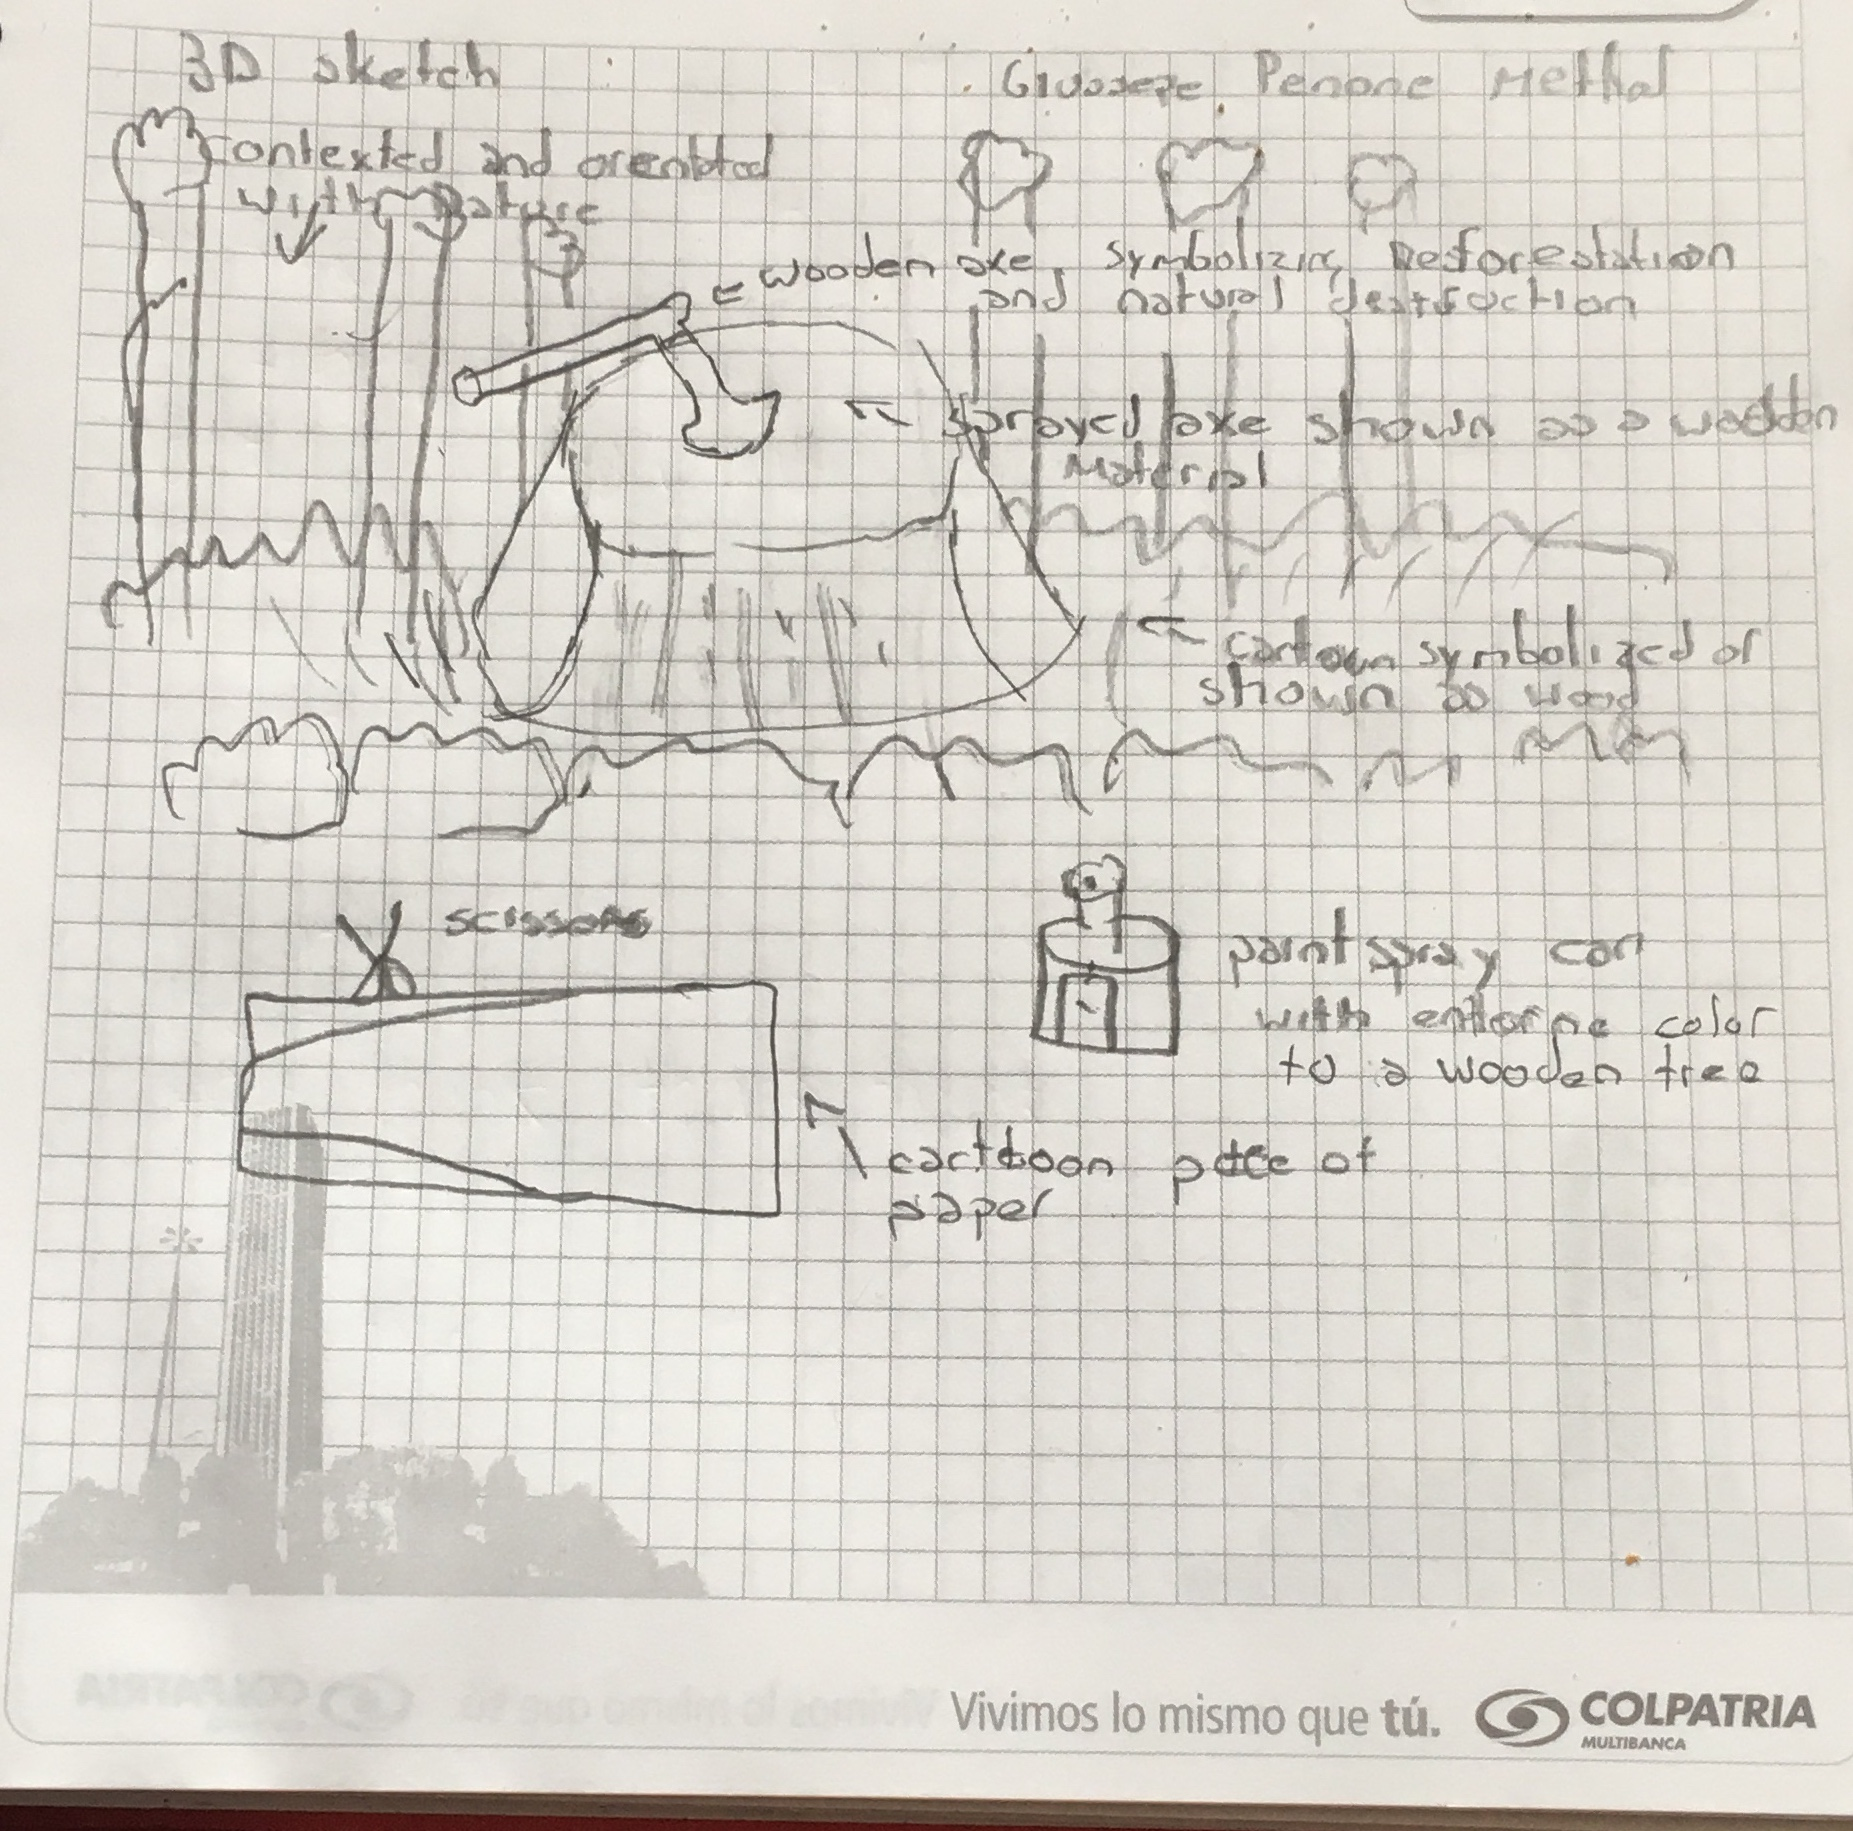 3D sketch
Giuseppe Penone Methal
contexted and orentated
with nature
wooden axe, symbolizing Desforestation
and natural destruction
sprayed axe shown as a wodden
Material
cartoon symbolized or
shown as wood
scissors
paint spray can
with color
to a wooden tree
cartboon of
paper
Vivimos lo mismo que tú.
COLPATRIA
MULTIBANCA